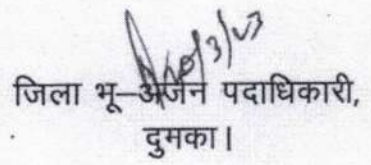 जिला भू–अर्जन पदाधिकारी,
दुमका।